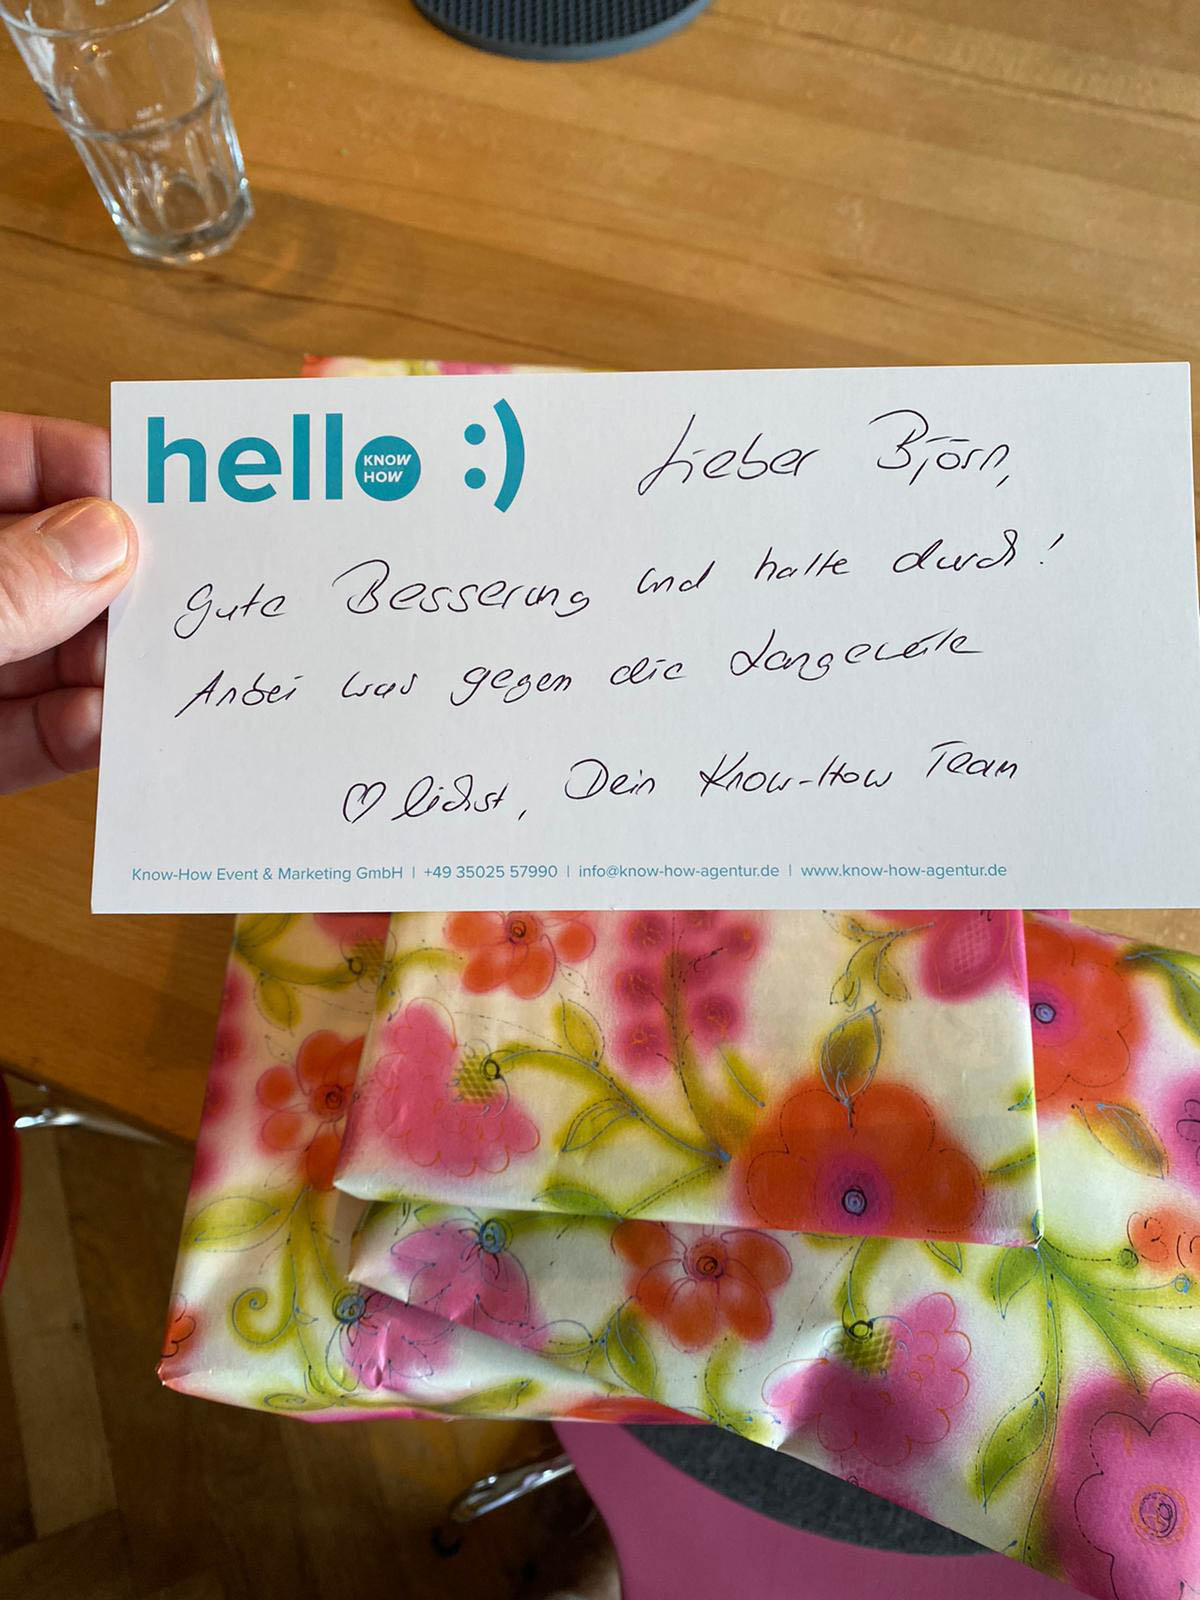 hello :)
KNOW
HOW
Lieber Björn,
Gute Besserung und halte durch!
Anbei was gegen die Langeweile
♡lichst, Dein Know-How Team
Know-How Event & Marketing GmbH | +49 35025 57990 | info@know-how-agentur.de | www.know-how-agentur.de